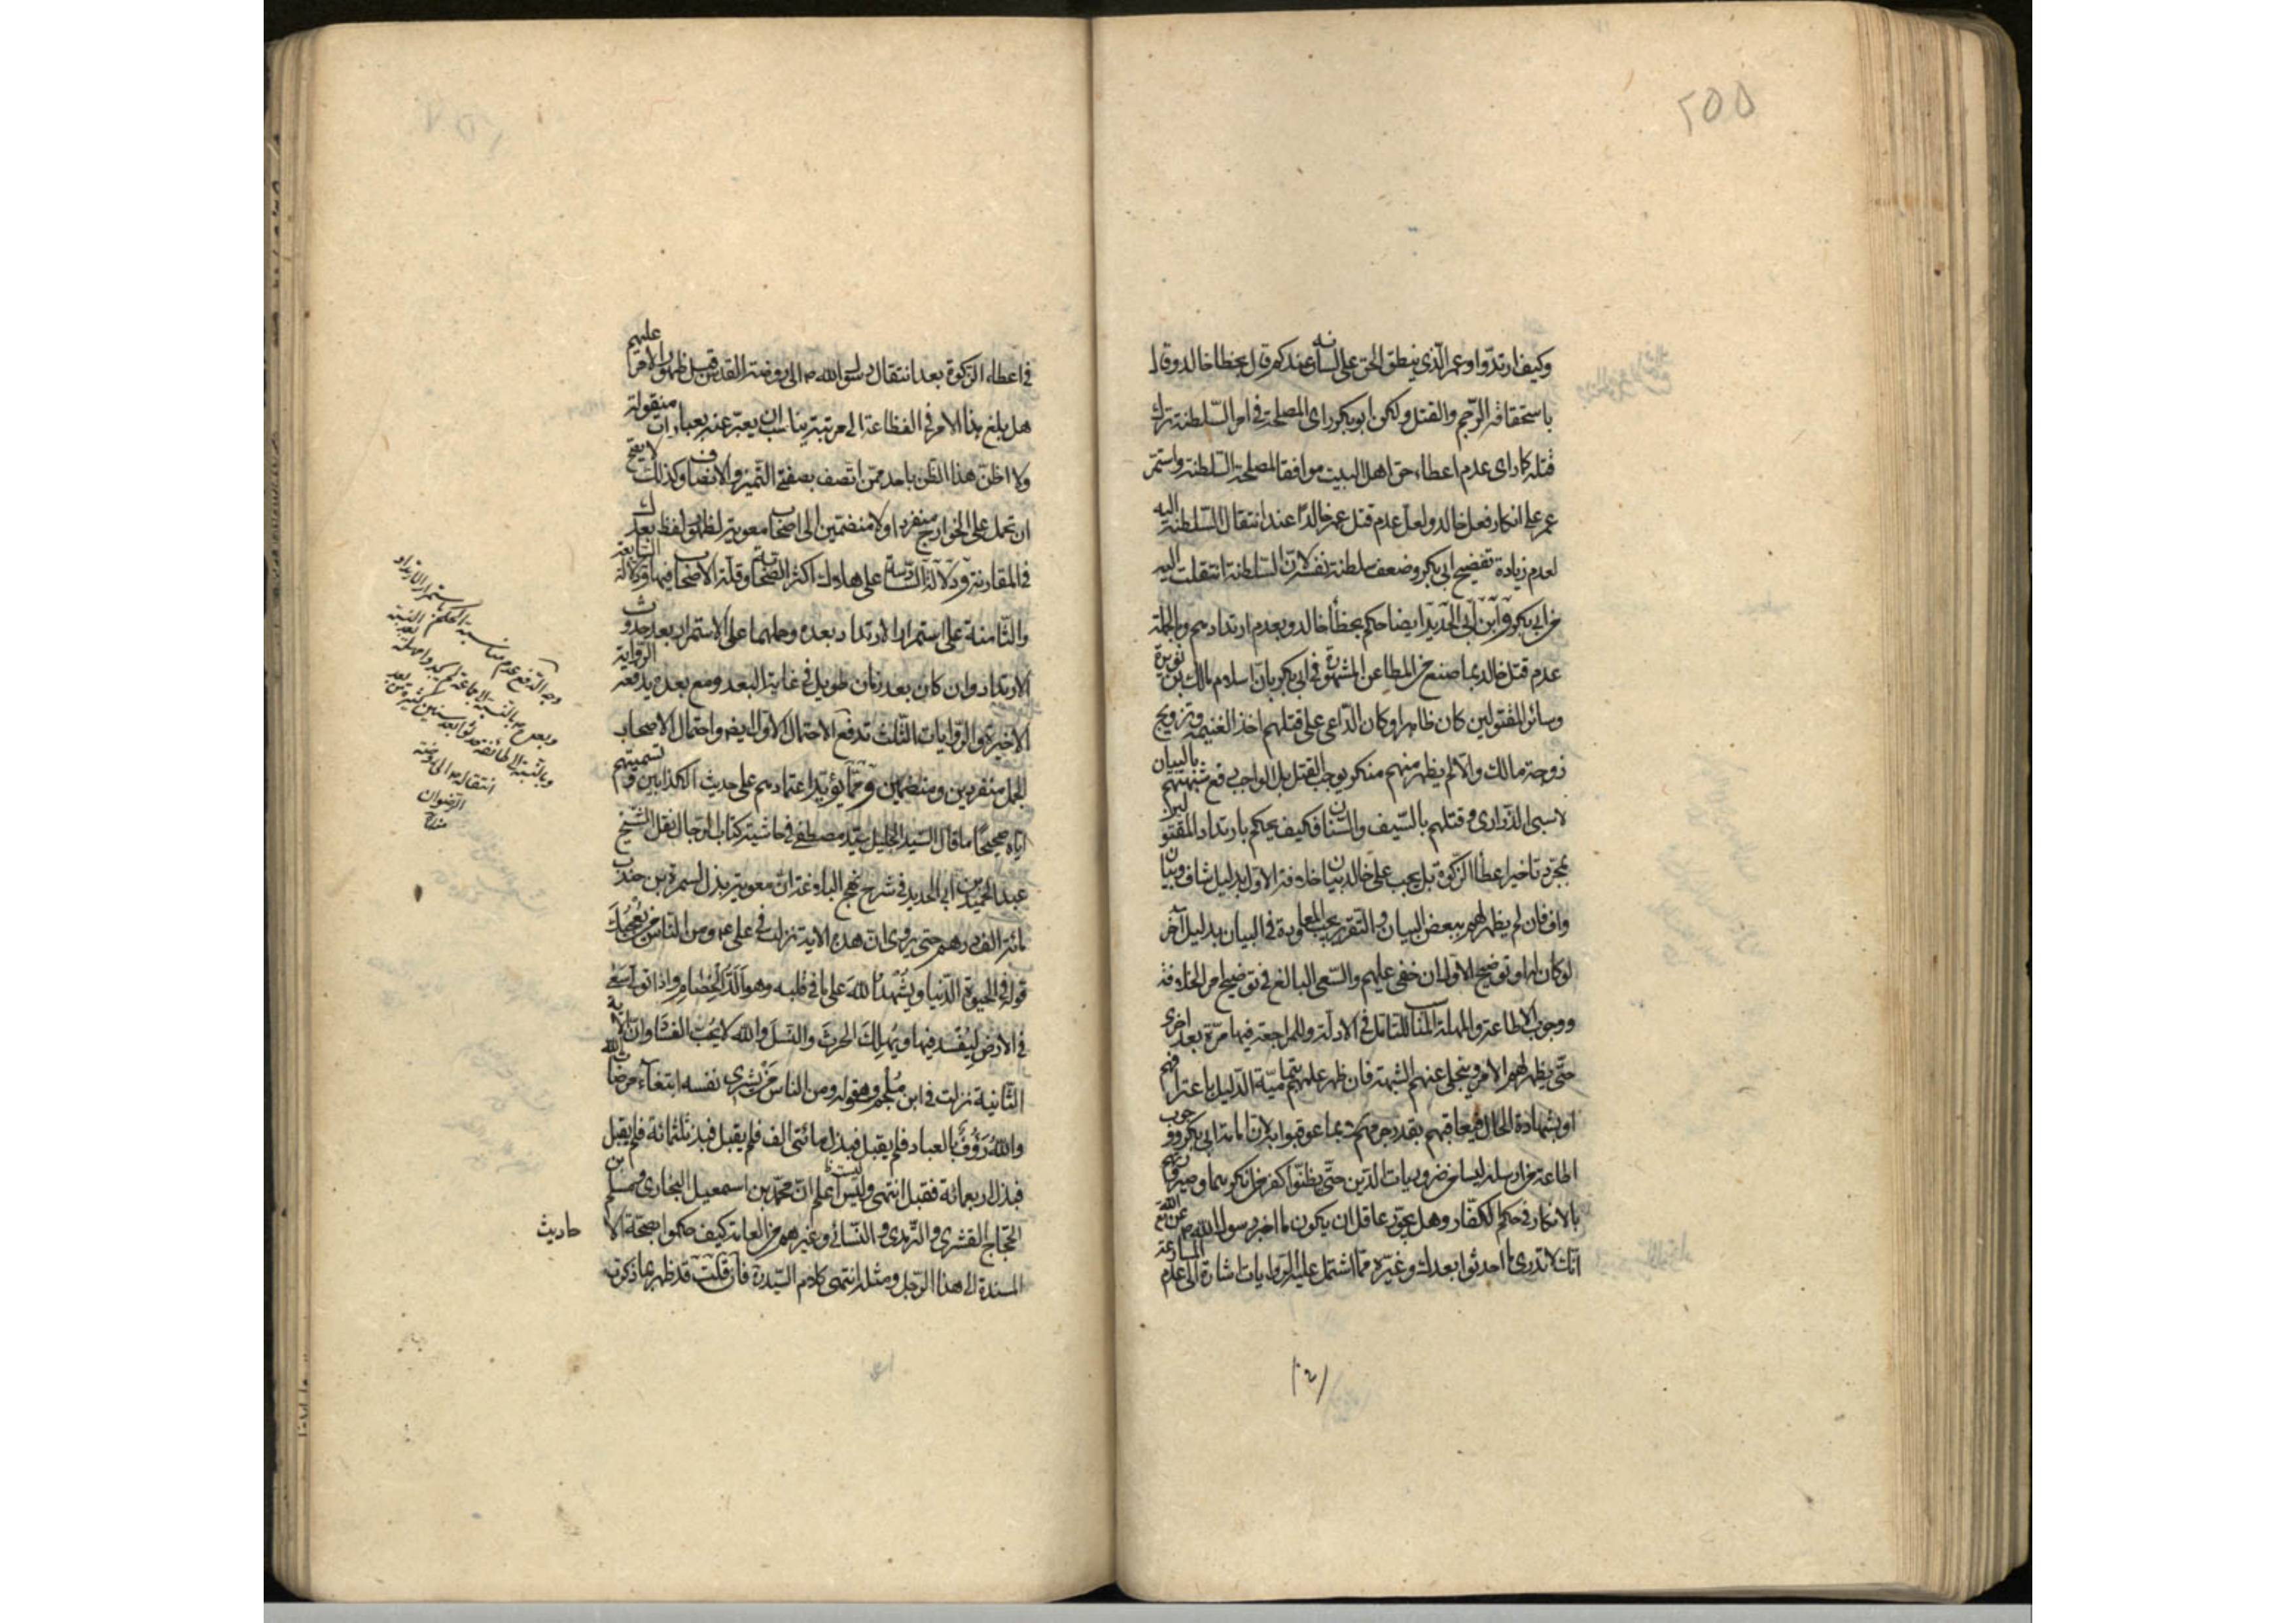 ٢٥٥
وكيف ارتدّوا وعمر الّذي ينطق الحق على لسانه عندكم قال بخطأ خالد وقال
باستحقاقه الرّجم والقتل ولكن ابو بكر راى المصلحة في امر السّلطنة ترك
قتله كما راى عدم اعطاء حق اهل البيت موافقا لمصلحة السّلطنة واستمرّ
عمر على انكار فعل خالد ولعل عدم قتل عمر خالدا عند انتقال السّلطنة اليه
لعدم زيادة تفضيح ابي بكر وضعف سلطنة نفسه لانّ السّلطنة انتقلت اليه
من ابي بكر وابن ابي الحديد ايضا حكم بخطأ خالد وبعدم ارتدادهم وبالجملة
عدم قتل خالد بما صنع من المطاعن المشهورة في ابي بكر بانّ اسلام مالك بن نويرة
وسائر المقتولين كان ظاهرا وكان الدّاعي على قتلهم اخذ الغنيمة وتزويج
زوجة مالك والّا لم يظهر منهم منكر يوجب القتل بل الواجب دفع شبهتهم بالبيان
لا سبي الذّراري وقتلهم بالسّيف والسّنان فكيف يحكم بارتداد المقتولين
بمجرّد تاخير اعطاء الزّكوة بل يجب على خالد بيان خلافة الاوّل بدليل شاف وبيان
واف فان لم يظهر لهم ببعض البيان والتّقرير يجب المعاودة في البيان بدليل آخر
لو كان لها وتوضيح الاوّل ان خفي عليهم والسّعي البالغ في توضيح امر الخلافة
ووجوب الاطاعة والمهلة المناسب للتّامل في الادلّة وللمراجعة فيها مرّة بعد اخرى
حتّى يظهر لهم الامر وينجلي عنهم الشبهة فان ظهر عليهم تماميّة الدّليل باعترافهم
او بشهادة الحال فيعاقبهم بقدر جرمهم بما عوقبوا به لانّ امامة ابي بكر ووجوب
اطاعة من ارسله ليسا من ضروريات الدّين حتّى يظنّوا كفر من انكرهما وصيرورتهم
بالانكار في حكم الكفّار وهل يجوّز عاقل ان يكون ما اخبر رسول الله ص عن الله تع
انّك لا تدري ما احدثوا بعدك وغيره ممّا اشتمل عليه الرّوايات اشارة الى عدم المسارعة
في اعطاء الزّكوة بعد انتقال رسول الله ص الى روضة القدس قبل ظهور الامر عليهم
هل بلغ هذا الامر في الفظاعة الى مرتبة يناسب ان يعبّر عنه بعبارات منقولة
ولا اظنّ هذا الظّن باحد ممّن اتّصف بصفتي التّميز والانصاف وكذلك لا يصحّ
ان تحمل على الخوارج منفردا ولا منضمّين الى اصحاب معوية لظهور لفظ بعدك
في المقارنة ودلالة السّادسة على هلاك اكثر الصّحابة وقلّة الاصحاب فيها ودلالة السّابعة
والثّامنة على استمرار الارتداد بعده وحملهما على الاستمرار بعد حدوث
الارتداد وان كان بعد زمان طويل في غاية البعد ومع بعده يدفعه الرّواية
الاخيرة والرّوايات الثّلث تدفع الاحتمال الاوّل ايضا واحتمال الاصحاب
الجمل منفردين ومنضمّين وممّا يؤيّد اعتمادهم على حديث الكذّابين وتسميتهم
ايّاه صحيحًا ما قال السّيد الجليل سيّد مصطفى في حاشية كتاب الرّجال نقل الشّيخ
عبد الحميد بن ابي الحديد في شرح نهج البلاغة انّ معوية بذل لسمرة بن جندب
مائة الف درهم حتى يروي انّ هذه الاية نزلت في علي ع ومن النّاس من يُعجبك
قوله في الحيوة الدّنيا ويُشهد الله على ما في قلبه وهو الدّ الخصام واذا تولّى سعى
في الارض ليُفسد فيها ويُهلك الحرث والنّسل والله لا يحبّ الفساد وانّ الاية
الثّانية نزلت في ابن ملجم وهو قوله ومن الناس من يشري نفسه ابتغاء مرضات الله
والله رؤف بالعباد فلم يقبل فبذل مائتي الف فلم يقبل فبذل ثلثمائة فلم يقبل
فبذل اربعمائة فقبل انتهى وليت اعلم انّ محمّد بن اسمعيل البخاري ومسلم بن
الحجّاج القشري والتّرمذي والنّسائي وغيرهم من العامة كيف حكموا بصحّة الاحاديث
المسندة الى هذا الرّجل ومثله انتهى كلام السّيد ره فان قلت قد ظهر بما ذكرت
وجه الدّفع عدم مناسبة الحكم باستمرار الارتداد
انتقاله ص الى روضة
الرّضوان
منه